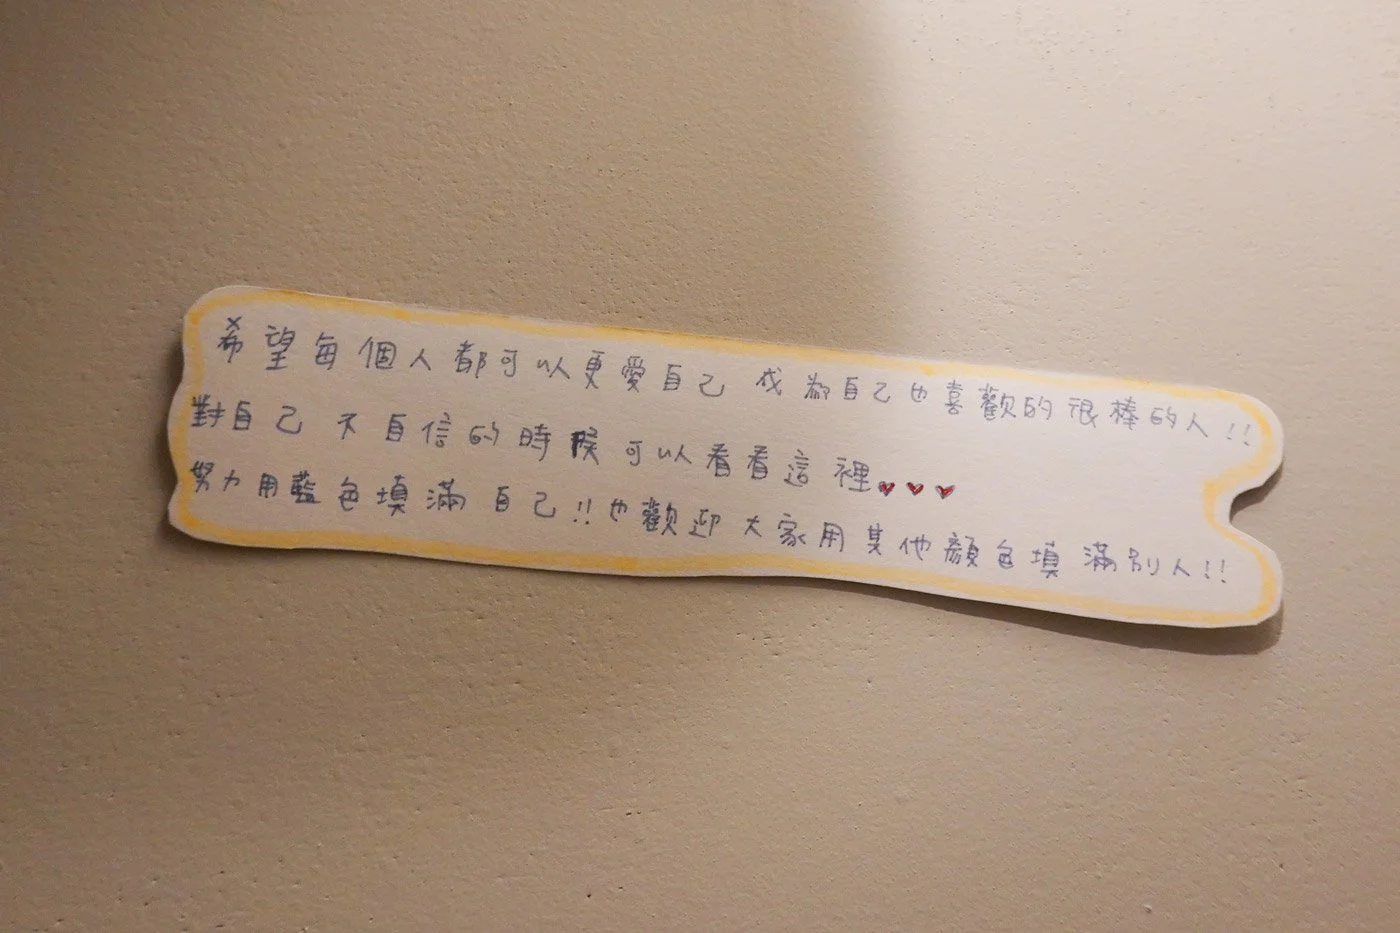 希望每個人都可以更愛自己 成為自己也喜歡的很棒的人!!
對自己不自信的時候可以看看這裡♥♥♥
努力用藍色填滿自己!!也歡迎大家用其他顏色填滿別人!!